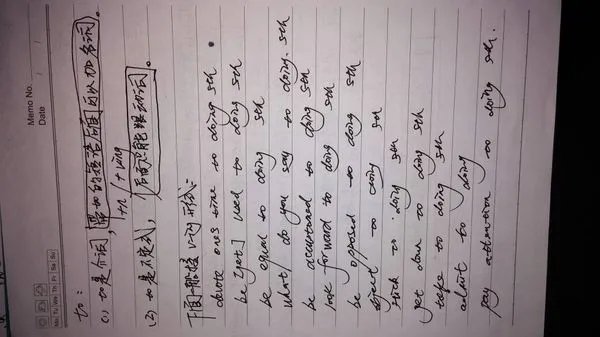 Memo No.
Date / /
Mo Tu We Th Fr Sa Su
to:
(1) to是介词, 常如的接短语后面可以加名词
+n / +Ving
(2) to是不定式, 后面只能跟动词
下面能接Ving形式:
devote ones time to doing sth
be [get] used to doing sth
be equal to doing sth
what do you say to doing sth
be accustomed to doing sth
look forward to doing sth
be opposed to doing sth
object to doing sth
stick to doing sth
get down to doing sth
take to doing sth
admit to doing
pay attention to doing sth.